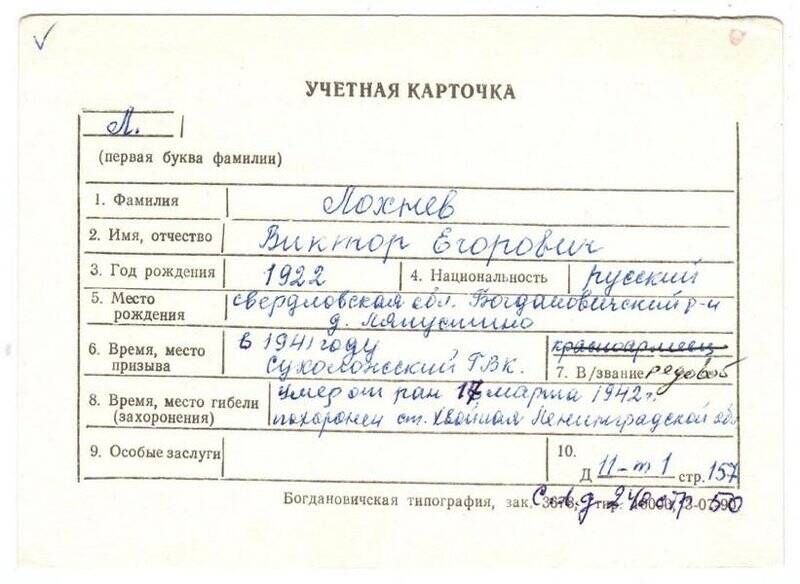 УЧЕТНАЯ КАРТОЧКА
Л.
(первая буква фамилии)
1. Фамилия Лохнев
2. Имя, отчество Виктор Егорович
3. Год рождения 1922 4. Национальность русский
5. Место рождения свердловская обл. Богдановичский р-н
д. Ляпустино
6. Время, место призыва в 1941 году
Сухоложский ГВК.
красноармеец
7. В/звание рядовой
8. Время, место гибели (захоронения) умер от ран 17 марта 1942 г.
похоронен ст. Хвойная Ленинградской об
9. Особые заслуги
10.
Д 11-т 1 стр. 157
Богдановичская типография, зак. 3678, тир. 3-07-90
д 240 стр 50